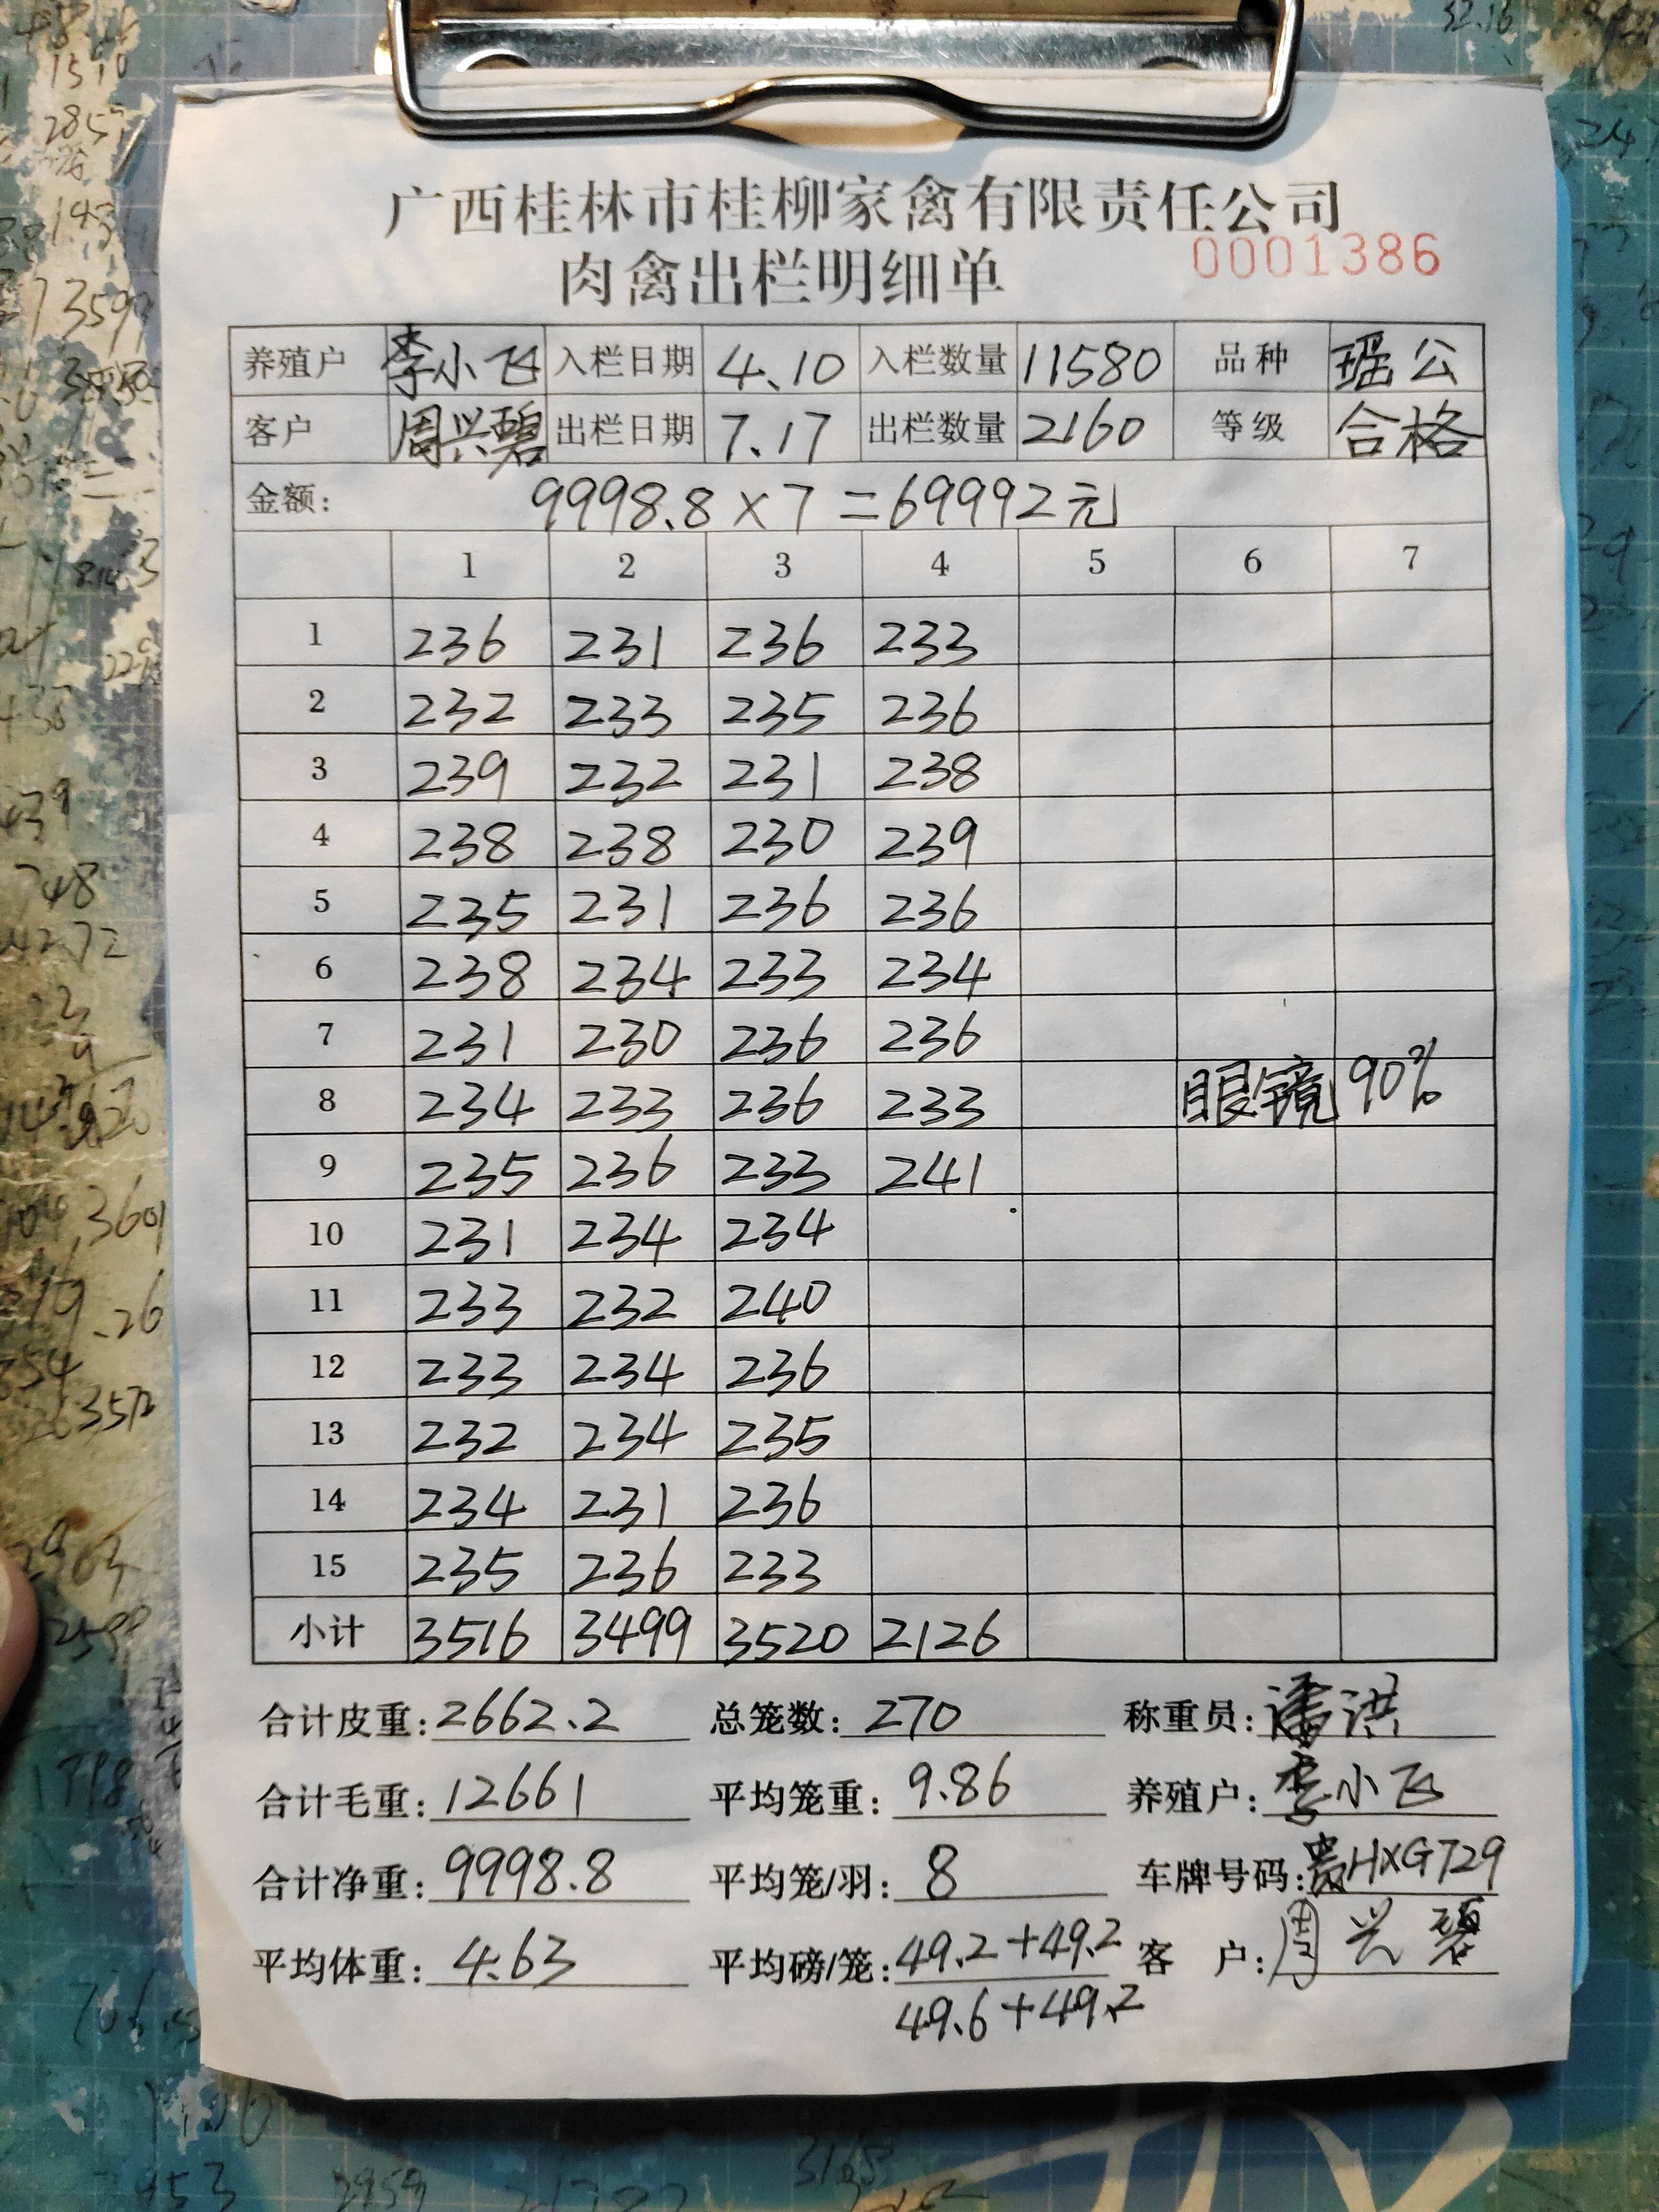 广西桂林市桂柳家禽有限责任公司
肉禽出栏明细单 0001386
养殖户 李小飞 入栏日期 4.10 入栏数量 11580 品种 瑶公
客户 周兴碧 出栏日期 7.17 出栏数量 2160 等级 合格
金额: 9998.8×7=69992元
1 2 3 4 5 6 7
1 236 231 236 233
2 232 233 235 236
3 239 232 231 238
4 238 238 230 239
5 235 231 236 236
6 238 234 233 234
7 231 230 236 236
8 234 233 236 233 眼镜 90%
9 235 236 233 241
10 231 234 234
11 233 232 240
12 233 234 236
13 232 234 235
14 234 231 236
15 235 236 233
小计 3516 3499 3520 2126
合计皮重: 2662.2 总笼数: 270 称重员: 潘洪
合计毛重: 12661 平均笼重: 9.86 养殖户: 李小飞
合计净重: 9998.8 平均笼/羽: 8 车牌号码: 贵HXG729
平均体重: 4.63 平均磅/笼: 49.2+49.2 客 户: 周兴碧
49.6+49.2